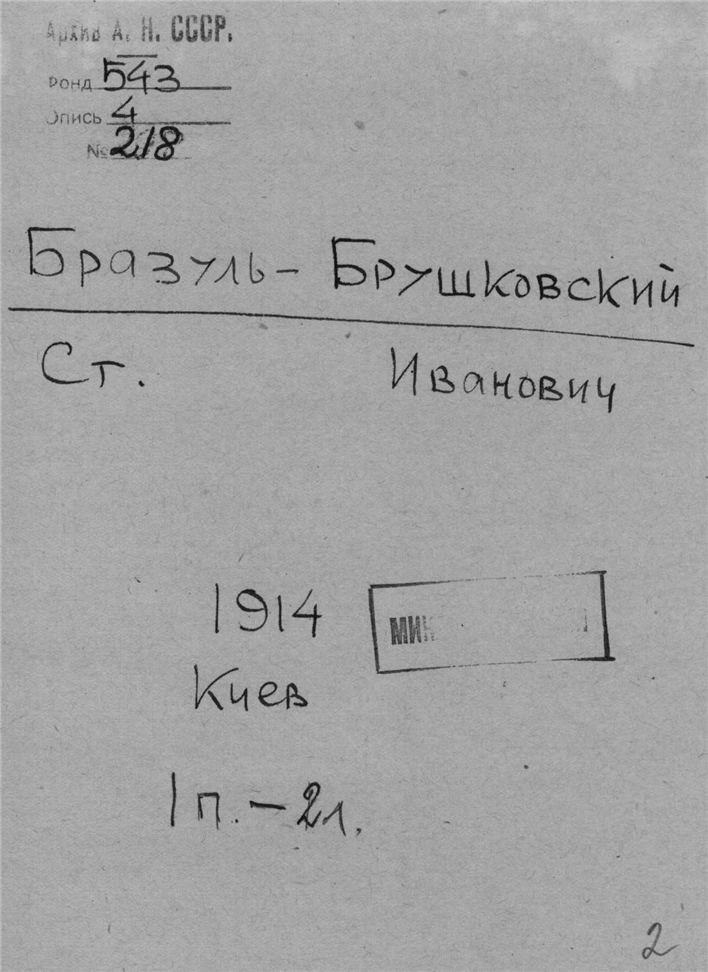 Архив А. Н. СССР.
Фонд 543
Опись 4
№ 218
Бразуль-Брушковский
Ст. Иванович
1914
Киев
1 п. - 2 л.
2